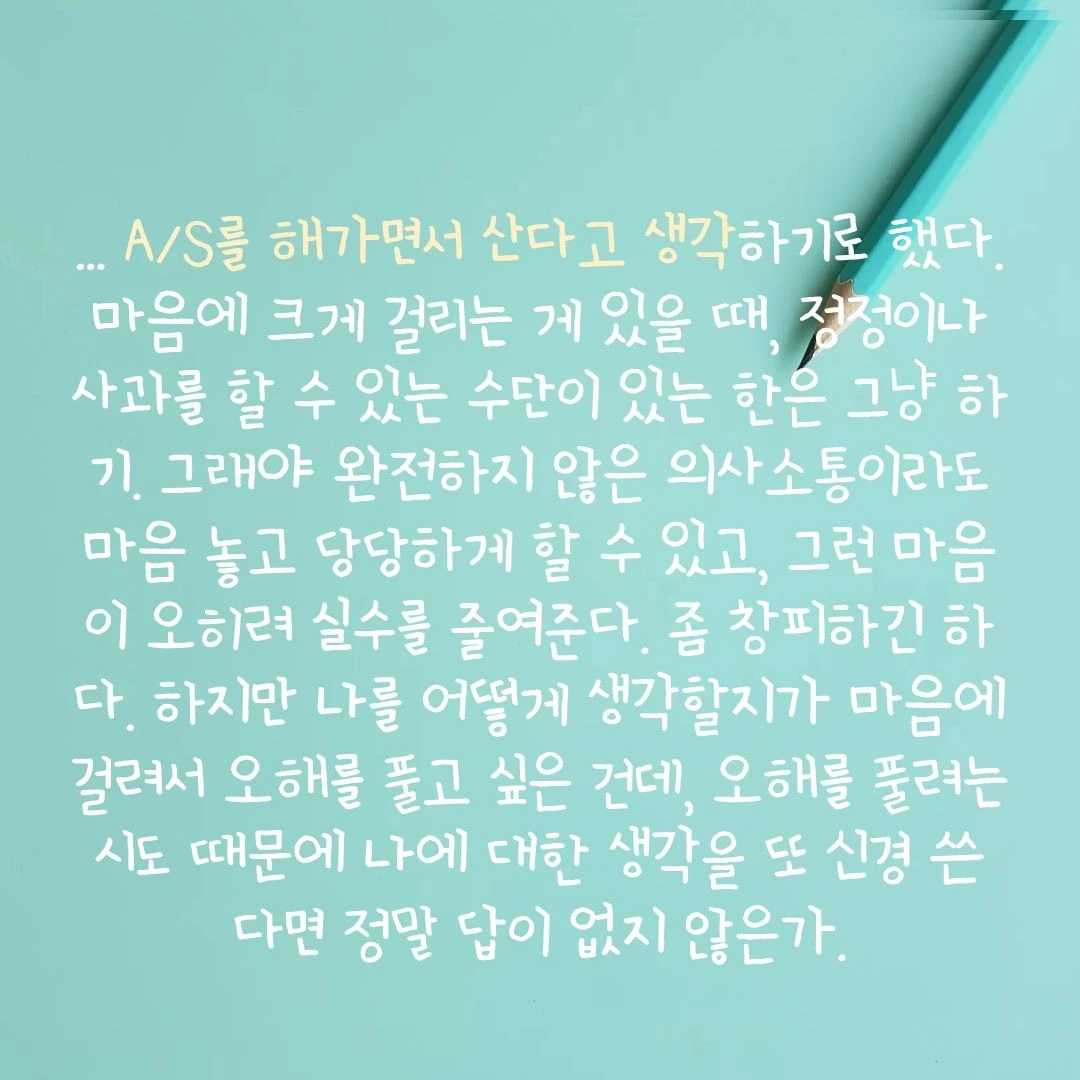 ... A/S를 해가면서 산다고 생각하기로 했다.
마음에 크게 걸리는 게 있을 때, 정정이나
사과를 할 수 있는 수단이 있는 한은 그냥 하
기. 그래야 완전하지 않은 의사소통이라도
마음 놓고 당당하게 할 수 있고, 그런 마음
이 오히려 실수를 줄여준다. 좀 창피하긴 하
다. 하지만 나를 어떻게 생각할지가 마음에
걸려서 오해를 풀고 싶은 건데, 오해를 풀려는
시도 때문에 나에 대한 생각을 또 신경 쓴
다면 정말 답이 없지 않은가.